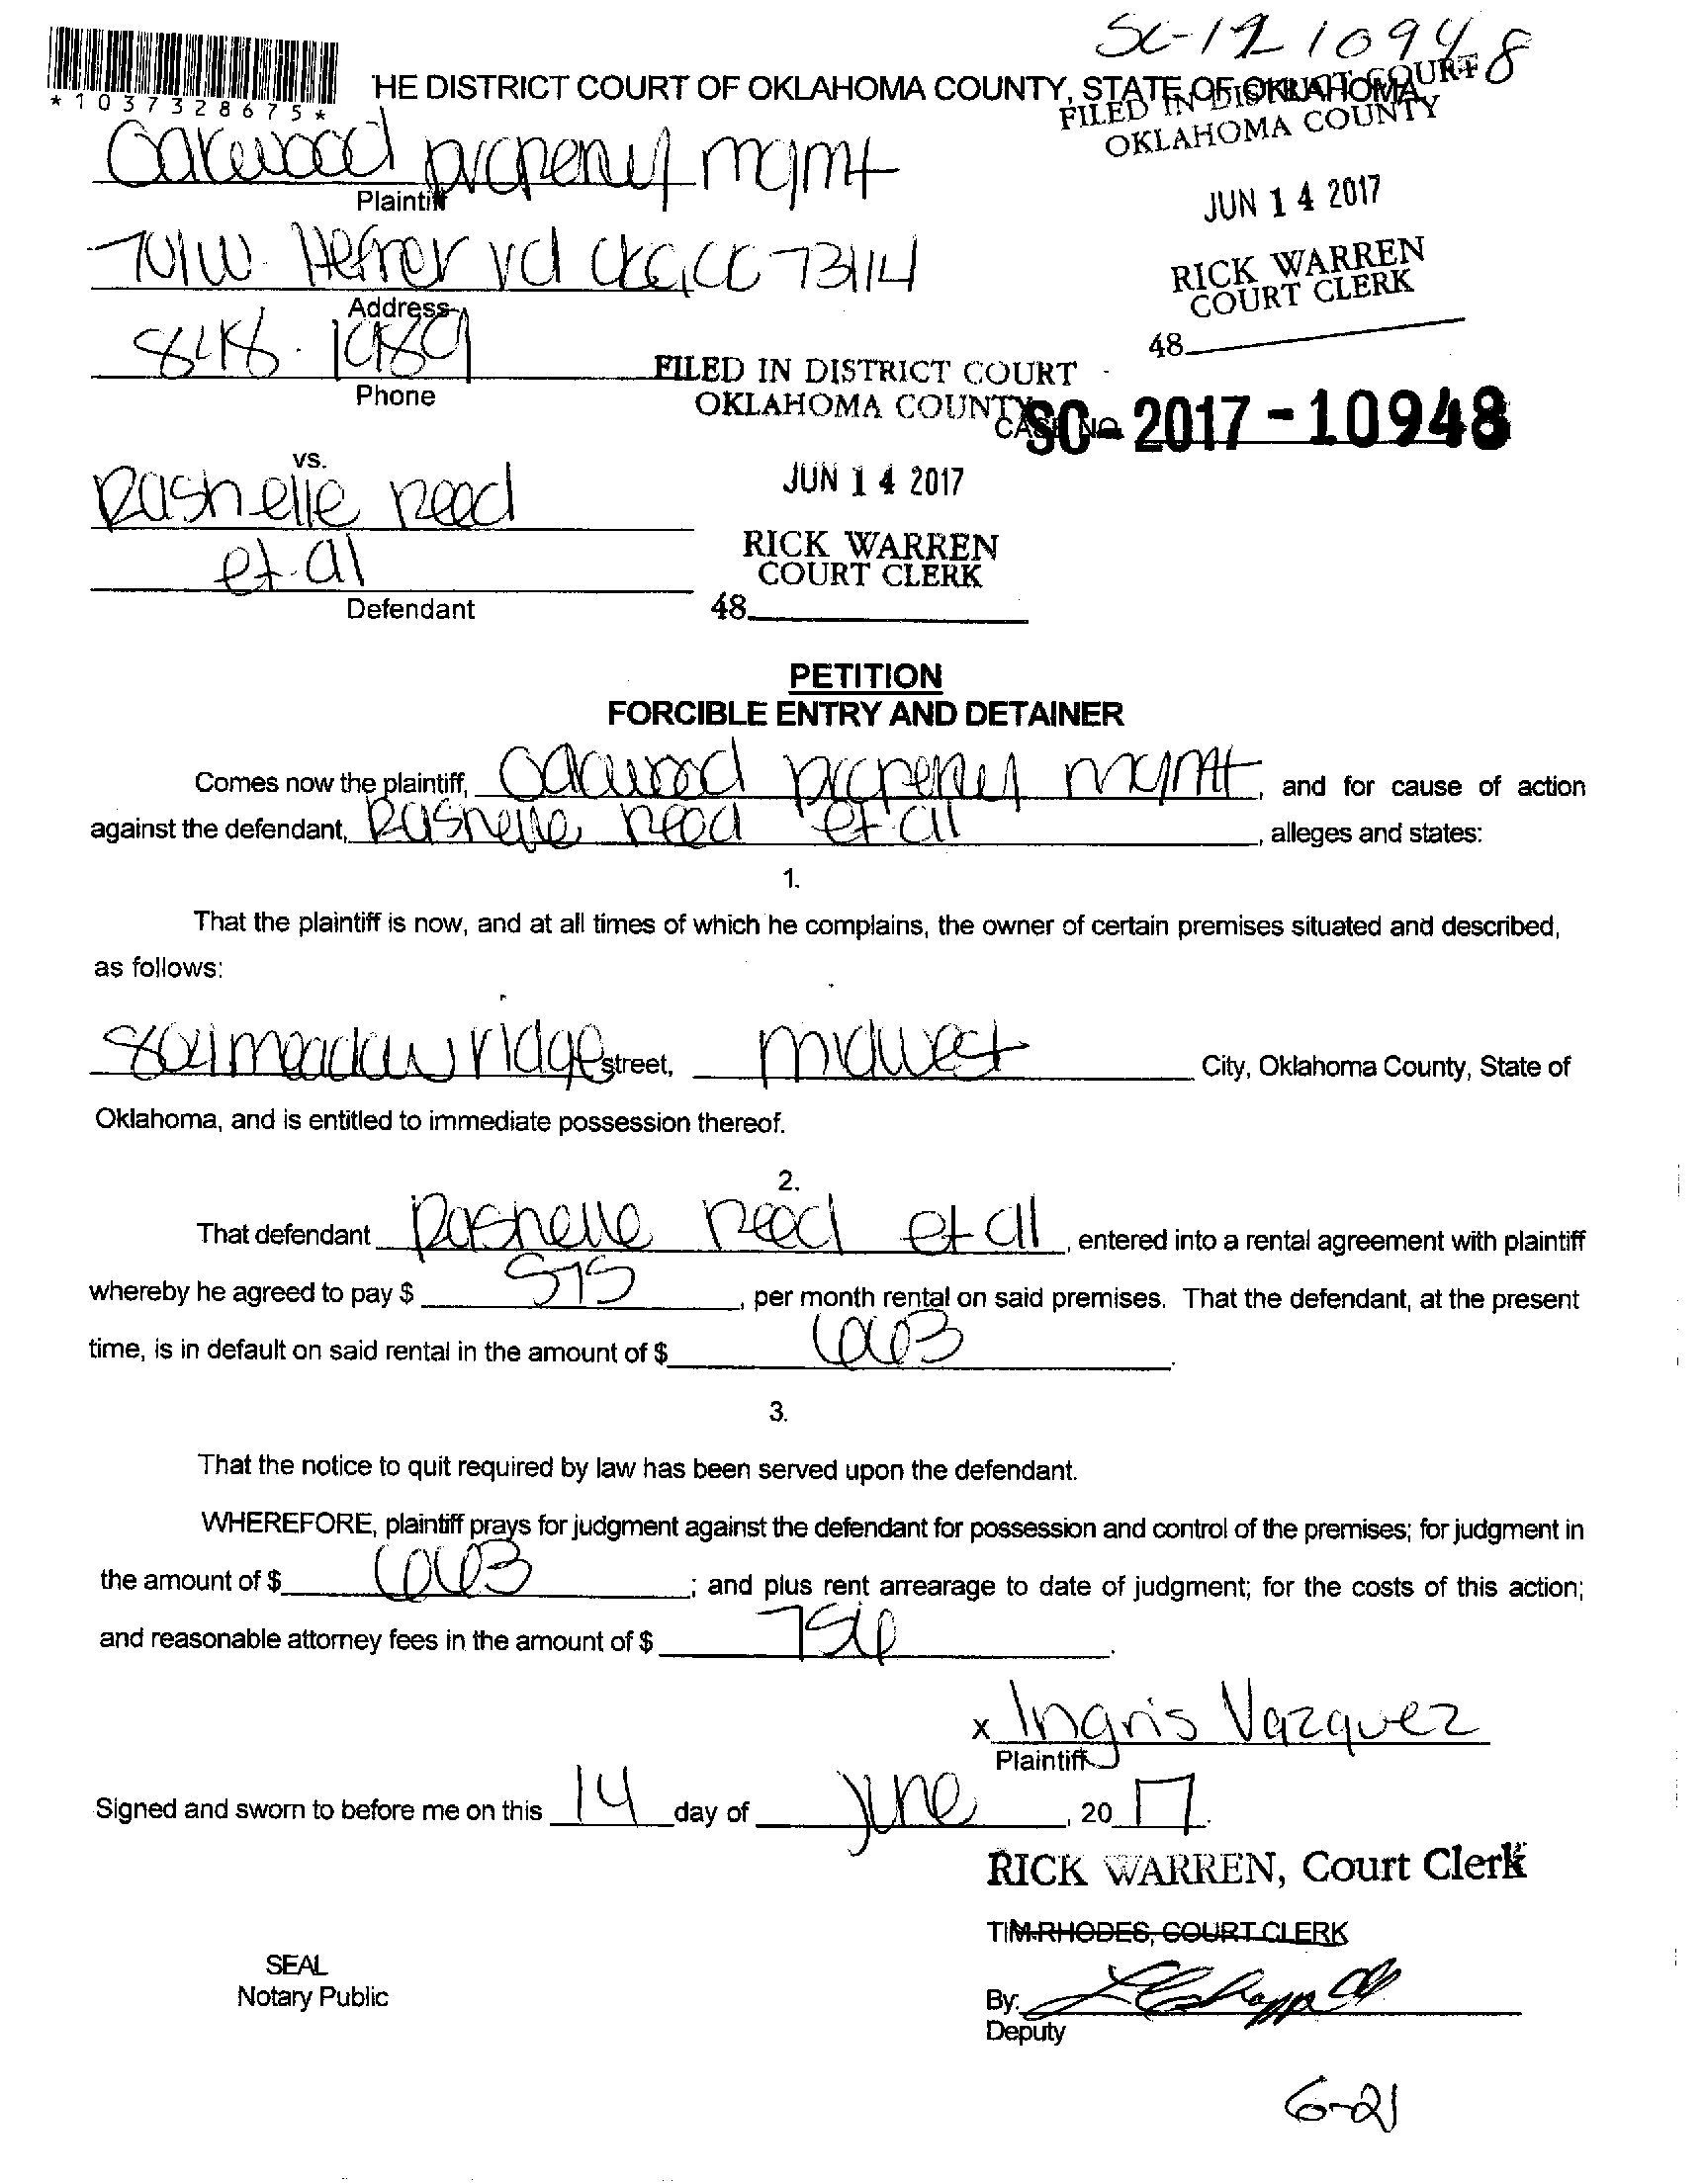 SC-17 10948
*1037328675*
HE DISTRICT COURT OF OKLAHOMA COUNTY, STATE OF OKLAHOMA
FILED IN DISTRICT COURT
OKLAHOMA COUNTY
Oakwood property mgmt
Plaintiff
JUN 14 2017
701 W. Hefner rd OKC, OK 73114
Address
RICK WARREN
COURT CLERK
848-1989
Phone
48
FILED IN DISTRICT COURT
OKLAHOMA COUNTY
CASE NO. SC-2017-10948
vs.
JUN 14 2017
Rashelle Reed
et. al
Defendant
RICK WARREN
COURT CLERK
48
PETITION
FORCIBLE ENTRY AND DETAINER
Comes now the plaintiff, Oakwood property mgmt, and for cause of action
against the defendant, Rashelle Reed et al, alleges and states:
1.
That the plaintiff is now, and at all times of which he complains, the owner of certain premises situated and described,
as follows:
804 meadow ridge street, midwest City, Oklahoma County, State of
Oklahoma, and is entitled to immediate possession thereof.
2.
That defendant Rashelle Reed et all, entered into a rental agreement with plaintiff
whereby he agreed to pay $ 575, per month rental on said premises. That the defendant, at the present
time, is in default on said rental in the amount of $ 663.
3.
That the notice to quit required by law has been served upon the defendant.
WHEREFORE, plaintiff prays for judgment against the defendant for possession and control of the premises; for judgment in
the amount of $ 663; and plus rent arrearage to date of judgment; for the costs of this action;
and reasonable attorney fees in the amount of $.
x Ingris Vazquez
Plaintiff
Signed and sworn to before me on this 14 day of June, 20 17.
RICK WARREN, Court Clerk
TIM RHODES, COURT CLERK
SEAL
Notary Public
By:
Deputy
6-21